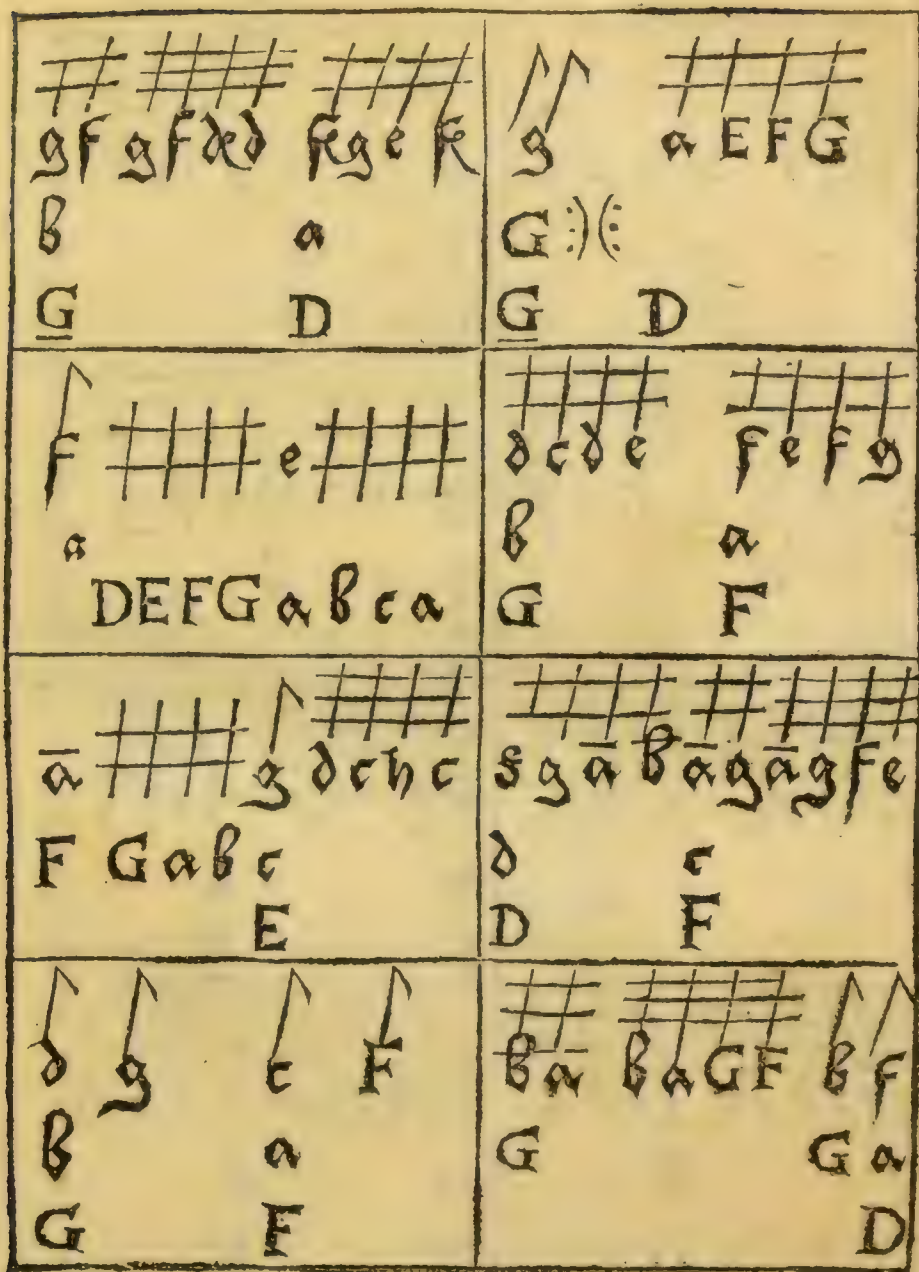 g f g f d e d f g e f
b a
G D
g a E F G
G :)(:
G D
f e
a
D E F G a b c a
d c d e f e f g
b a
G F
a g d c h c
F G a b c
E
g a b a g a g f e
d c
D F
d g c F
b a
G F
b a b a G F b f
G G a
D